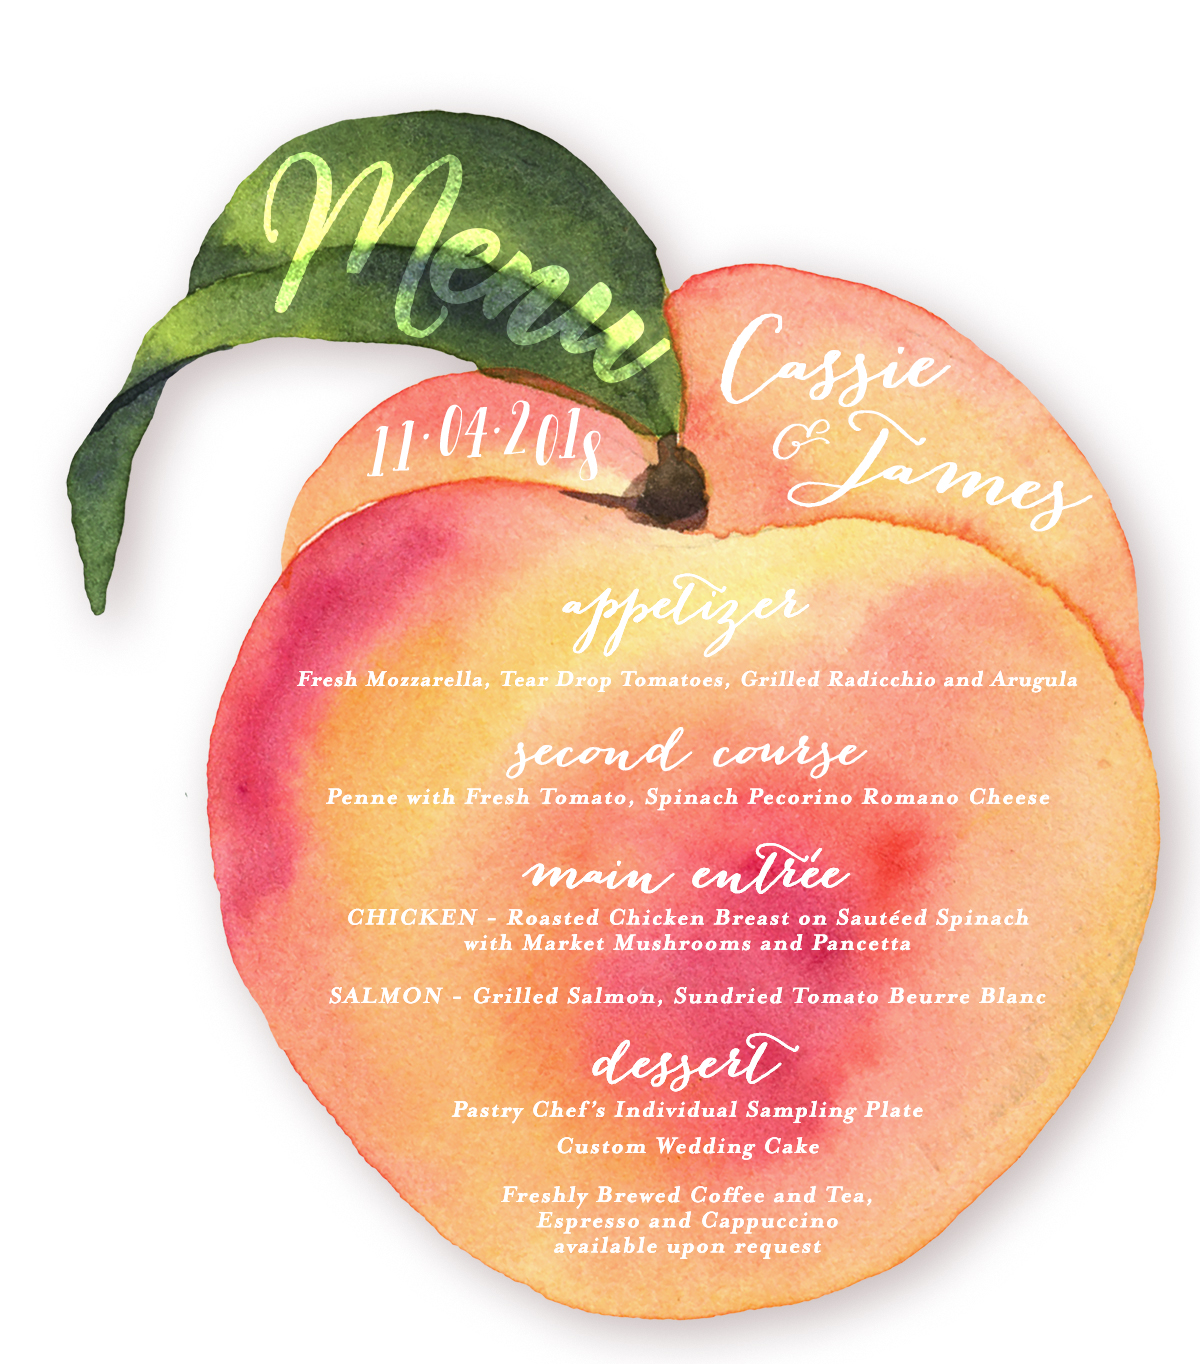 Menu
11·04·2018
Cassie
& James
appetizer
Fresh Mozzarella, Tear Drop Tomatoes, Grilled Radicchio and Arugula
second course
Penne with Fresh Tomato, Spinach Pecorino Romano Cheese
main entrée
CHICKEN - Roasted Chicken Breast on Sautéed Spinach
with Market Mushrooms and Pancetta
SALMON - Grilled Salmon, Sundried Tomato Beurre Blanc
dessert
Pastry Chef's Individual Sampling Plate
Custom Wedding Cake
Freshly Brewed Coffee and Tea,
Espresso and Cappuccino
available upon request